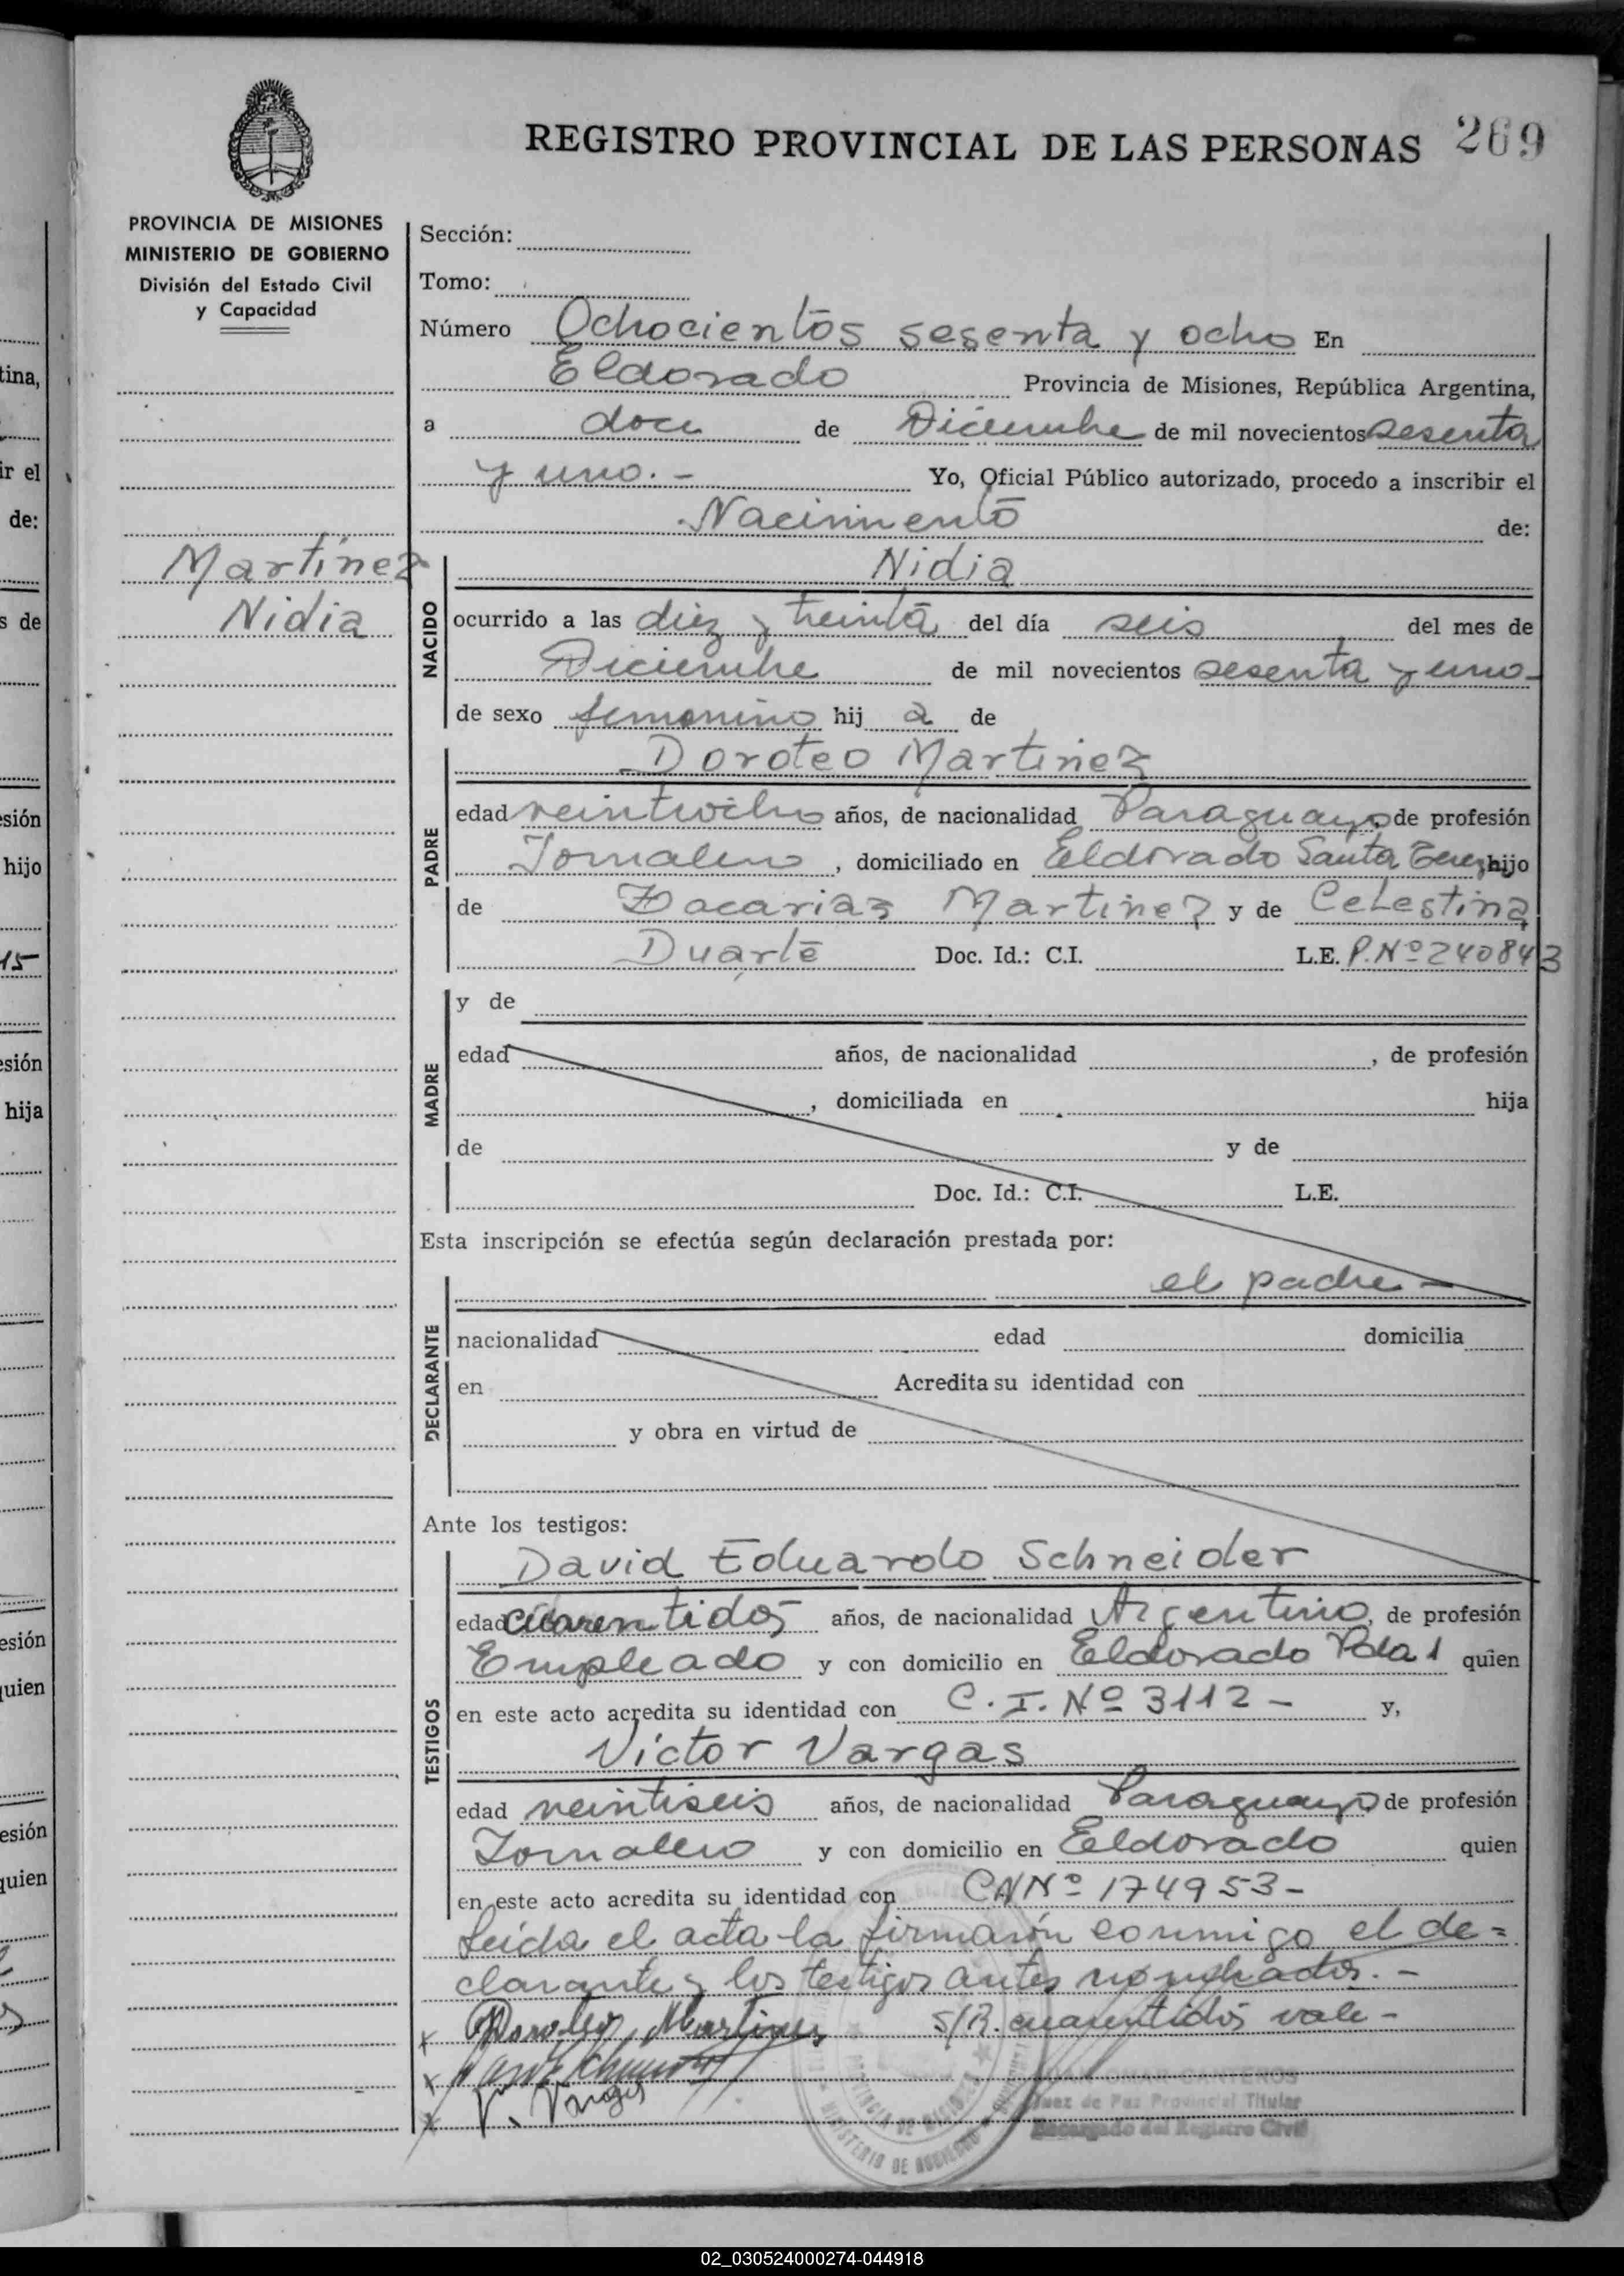 REGISTRO PROVINCIAL DE LAS PERSONAS 269
PROVINCIA DE MISIONES
MINISTERIO DE GOBIERNO
División del Estado Civil
y Capacidad
Martínez
Nidia
Sección:
Tomo:
Número Ochocientos sesenta y ocho En
Eldorado Provincia de Misiones, República Argentina,
a doce de Diciembre de mil novecientos sesenta
y uno.- Yo, Oficial Público autorizado, procedo a inscribir el
Nacimiento de:
NACIDO
Nidia
ocurrido a las diez y treinta del día seis del mes de
Diciembre de mil novecientos sesenta y uno-
de sexo femenino hij a de
PADRE
Doroteo Martinez
edad veintiocho años, de nacionalidad Paraguayo de profesión
Jornalero, domiciliado en Eldorado Santa Teresa hijo
de Zacarias Martinez y de Celestina
Duarte Doc. Id.: C.I. L.E. P.Nº 240843
MADRE
y de
edad años, de nacionalidad , de profesión
, domiciliada en hija
de y de
Doc. Id.: C.I. L.E.
Esta inscripción se efectúa según declaración prestada por:
el padre-
DECLARANTE
nacionalidad edad domicilia
en Acredita su identidad con
y obra en virtud de
Ante los testigos:
TESTIGOS
David Eduardo Schneider
edad cuarentidós años, de nacionalidad Argentino, de profesión
Empleado y con domicilio en Eldorado Pda 1 quien
en este acto acredita su identidad con C.I. Nº 3112- y,
Victor Vargas
edad veintiseis años, de nacionalidad Paraguayo de profesión
Jornalero y con domicilio en Eldorado quien
en este acto acredita su identidad con CN Nº 174953-
Leida el acta la firmarón conmigo el de=
clarante y los testigos antes nombrados.-
x Doroteo Martinez S/R. cuarentidós vale-
x
x V. Vargas
OMAR CANTEROS
Juez de Paz Provincial Titular
Encargado del Registro Civil
PROVINCIA DE MISIONES
MINISTERIO DE GOBIERNO
tina,
ir el
de:
s de
esión
hijo
15
esión
hija
esión
quien
esión
quien
02_030524000274-044918